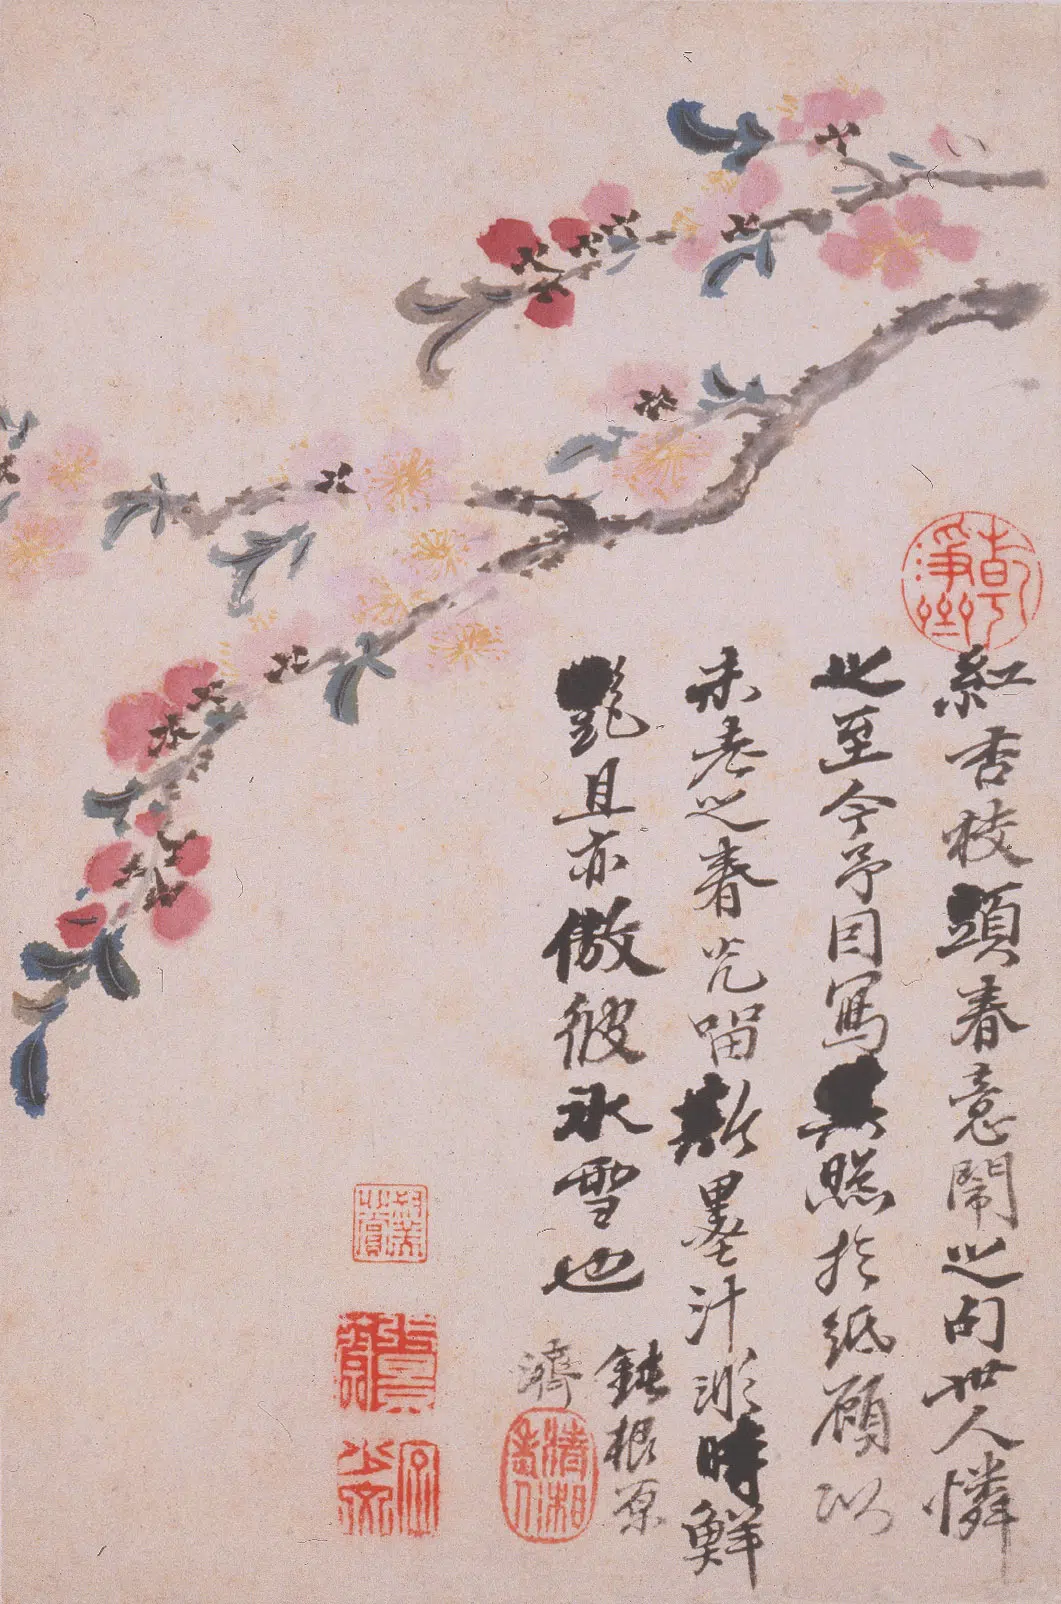 紅杏枝頭春意鬧之句世人憐
之至今予因寫其照於紙顧以
未老之春光留斯墨汁時鮮
艷且亦傲彼冰雪也
鈍根原
濟
清湘老人